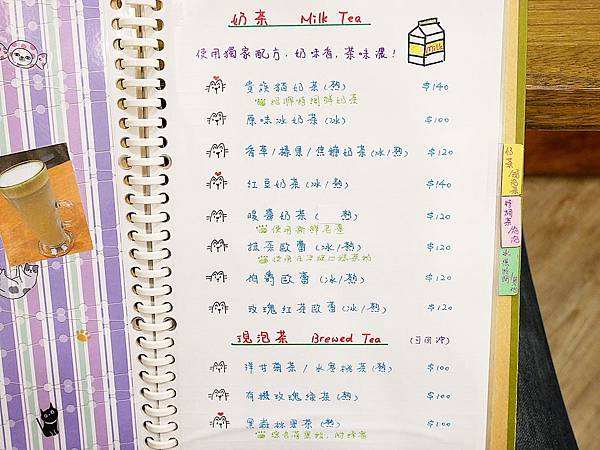 奶茶 Milk Tea
Milk
使用獨家配方，奶味香，茶味濃！
貴族貓奶茶(熱) $140
招牌特調鮮奶茶
原味冰奶茶(冰) $100
香草/榛果/焦糖奶茶(冰/熱) $120
紅豆奶茶(冰/熱) $140
暖薑奶茶( 熱) $120
使用新鮮老薑
抹茶歐蕾(冰/熱) $120
使用日本
伯爵歐蕾(冰/熱) $120
玫瑰紅茶歐蕾(冰/熱) $120
現泡茶 Brewed Tea (可回沖)
洋甘菊茶/水蜜桃茶(熱) $100
有機玫瑰 茶(熱) $100
黑森林果茶(熱) $100
綜合莓果粒，附蜂蜜
奶茶
特調茶